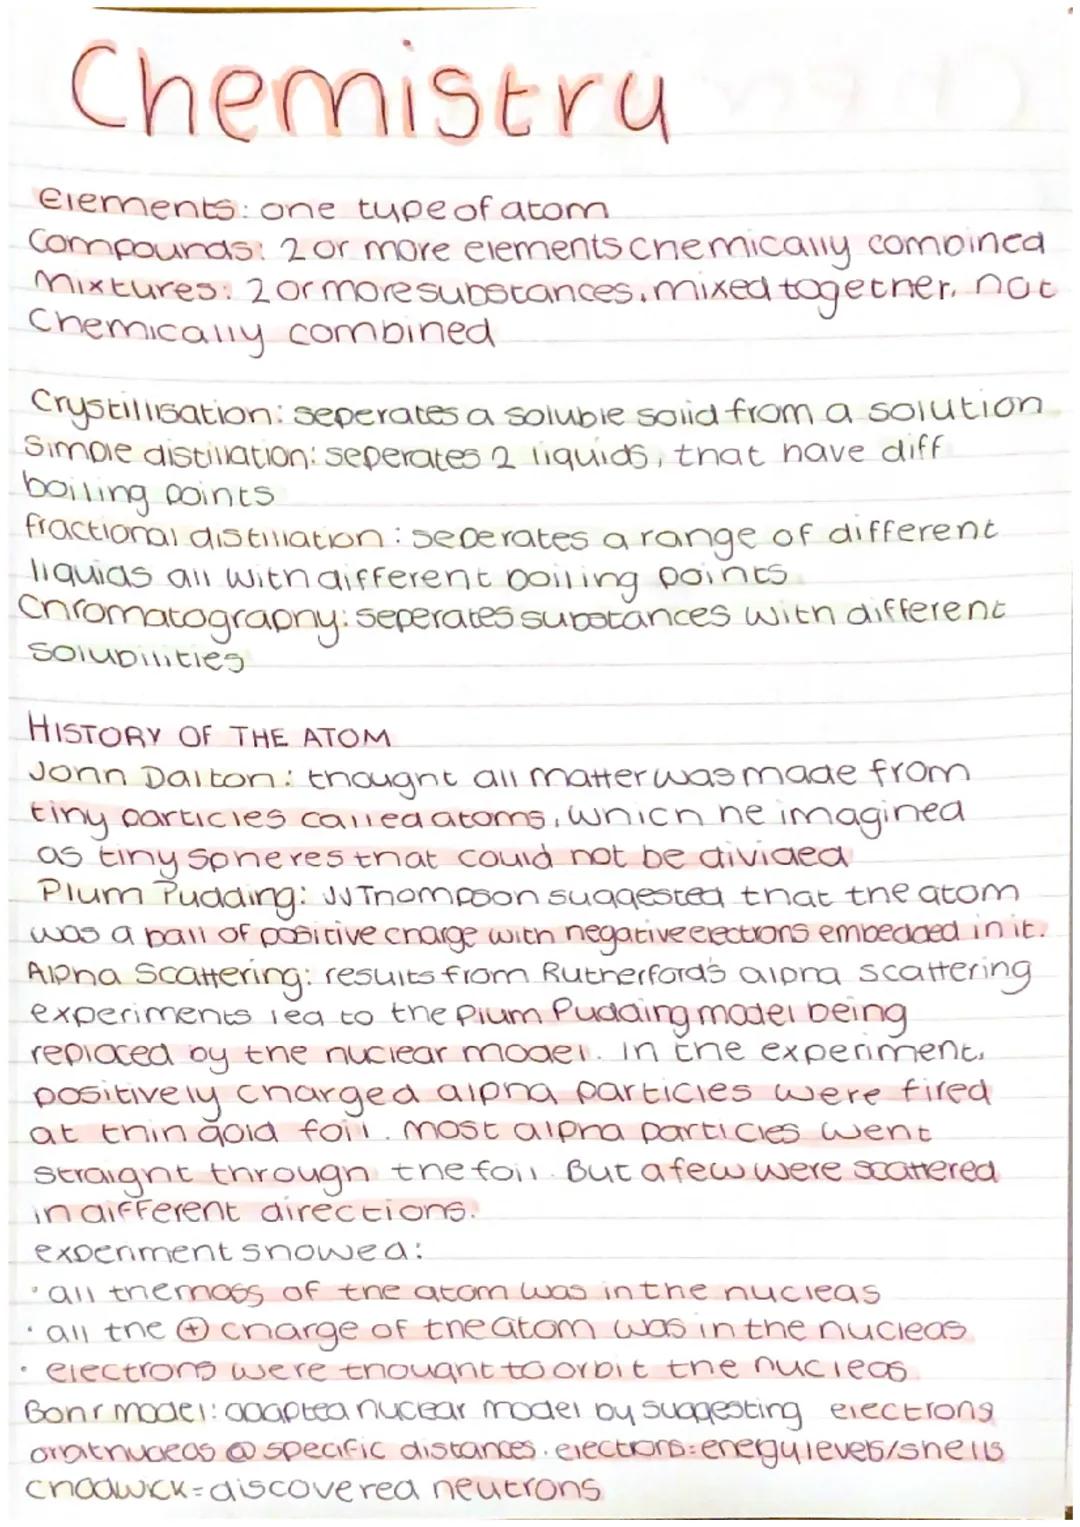 Chemistry
Elements: one type of atom
Compounds: 2 or more elements chemically combined
Mixtures: 2 or more substances, mixed together, not
Chemically combined
Crystillisation: seperates a soluble solid from a solution
Simple distillation: seperates 2 liquids, that have diff
boiling points
fractional distillation: seperates a range of different
liquids all with different boiling points
Chromatography: seperates substances with different
solubilities
HISTORY OF THE ATOM
John Dalton: thought all matter was made from
tiny particles called atoms, which he imagined
as tiny spheres that could not be divided
Plum Pudding: JJ Thompson suggested that the atom
was a ball of positive charge with negative electrons embedded in it.
Alpha Scattering: results from Rutherford's alpha scattering
experiments lead to the Plum Pudding model being
replaced by the nuclear model. in the experiment,
positively charged alpha particles were fired
at thin gold foil. most alpha particles went
straight through the foil. But a few were scattered
in different directions.
experiment showed:
· all the mass of the atom was in the nucleas
· all the ⊕ charge of the atom was in the nucleas
· electrons were thought to orbit the nucleas
Bohr model: adapted nuclear model by suggesting electrons
orbit nucleas @ specific distances. electrons: energy levels/shells
chadwick = discovered neutrons